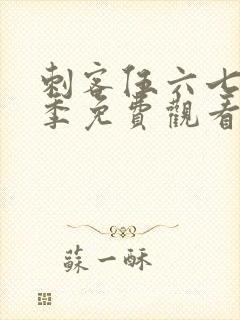 刺客伍六七
季免費觀看
蘇一酥